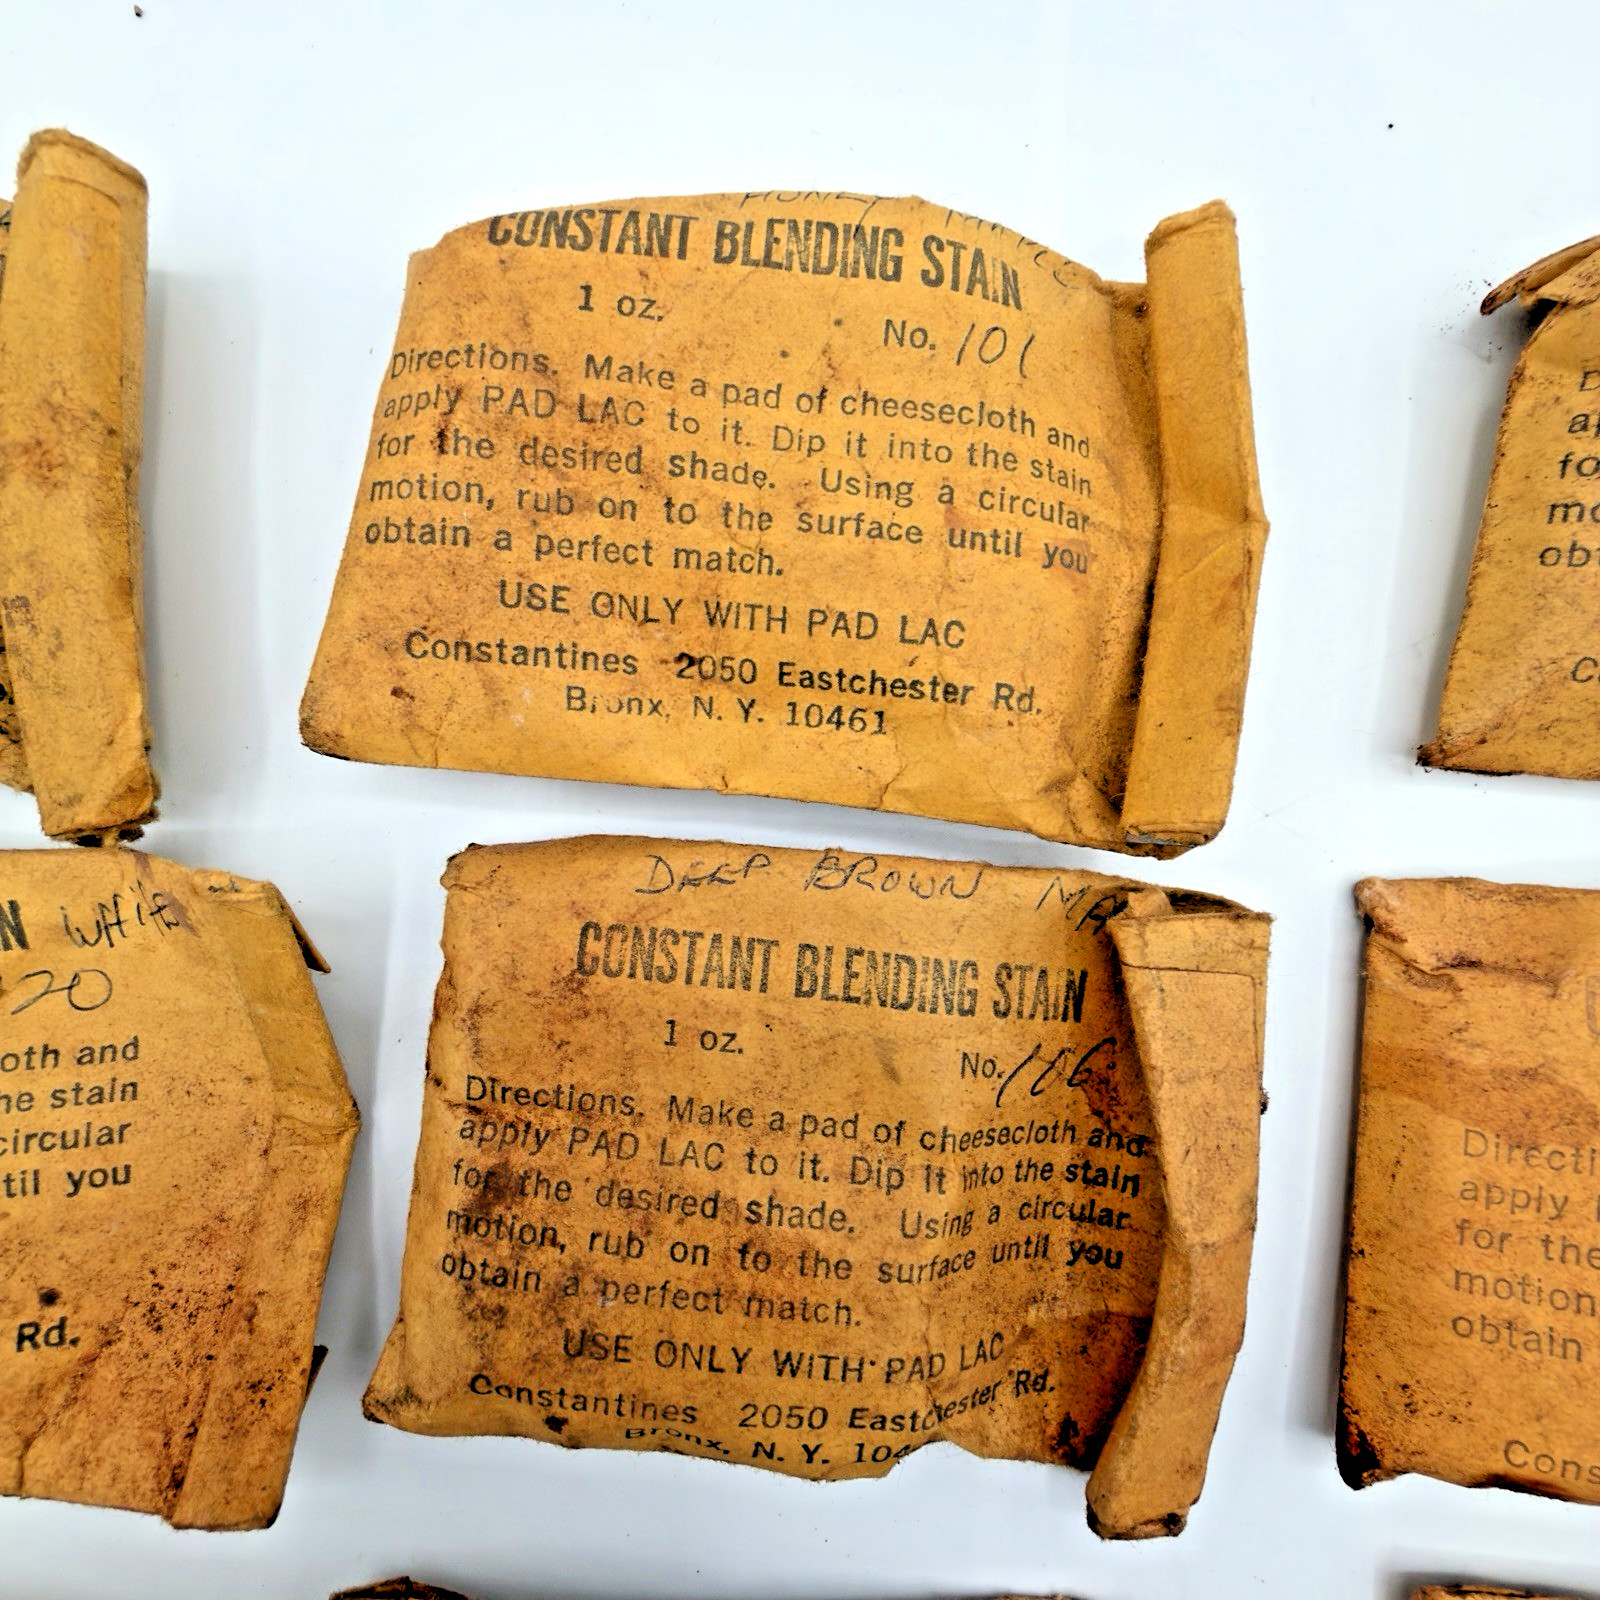 HONEY MAPLE
CONSTANT BLENDING STAIN
1 oz.
No. 101
Directions. Make a pad of cheesecloth and
apply PAD LAC to it. Dip it into the stain
for the desired shade. Using a circular
motion, rub on to the surface until you
obtain a perfect match.
USE ONLY WITH PAD LAC
Constantines 2050 Eastchester Rd.
Bronx, N. Y. 10461
DEEP BROWN MA
CONSTANT BLENDING STAIN
1 oz.
No. 106
Directions. Make a pad of cheesecloth and
apply PAD LAC to it. Dip it into the stain
for the desired shade. Using a circular
motion, rub on to the surface until you
obtain a perfect match.
USE ONLY WITH PAD LAC
Constantines 2050 Eastchester Rd.
Bronx, N. Y. 104
N White
20
oth and
he stain
circular
til you
Rd.
D
ap
fo
mo
obt
C
Directi
apply
for the
motion
obtain
Cons